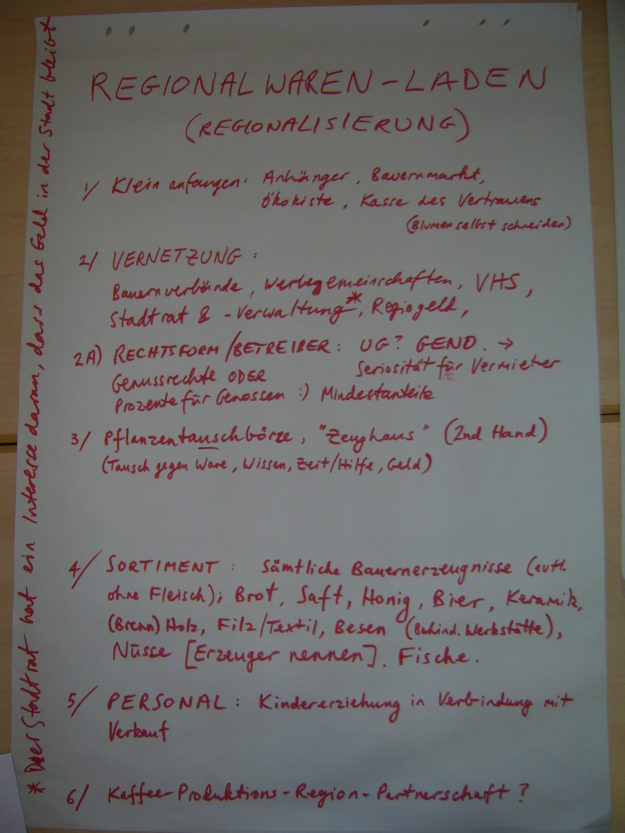 REGIONALWAREN-LADEN
(REGIONALISIERUNG)
1/ Klein anfangen: Anhänger, Bauernmarkt,
Ökokiste, Kasse des Vertrauens
(Blumen selbst schneiden)
2/ VERNETZUNG:
Bauernverbände, Werbegemeinschaften, VHS,
Stadtrat & -Verwaltung*, Regiogeld,
2A) RECHTSFORM/BETREIBER: UG? GENO. →
Seriosität für Vermieter
Genussrechte ODER
Prozente für Genossen :) Mindestanteile
3/ Pflanzentauschbörze, "Zeughaus" (2nd Hand)
(Tausch gegen Ware, Wissen, Zeit/Hilfe, Geld)
4/ SORTIMENT: Sämtliche Bauernerzeugnisse (evtl.
ohne Fleisch); Brot, Saft, Honig, Bier, Keramik,
(Brenn)Holz, Filz/Textil, Besen (Behind. Werkstätte),
Nüsse [Erzeuger nennen]. Fische.
5/ PERSONAL: Kindererziehung in Verbindung mit
Verkauf
6/ Kaffee-Produktions-Region-Partnerschaft?
* Der Stadtrat hat ein Interesse daran, dass das Geld in der Stadt bleibt